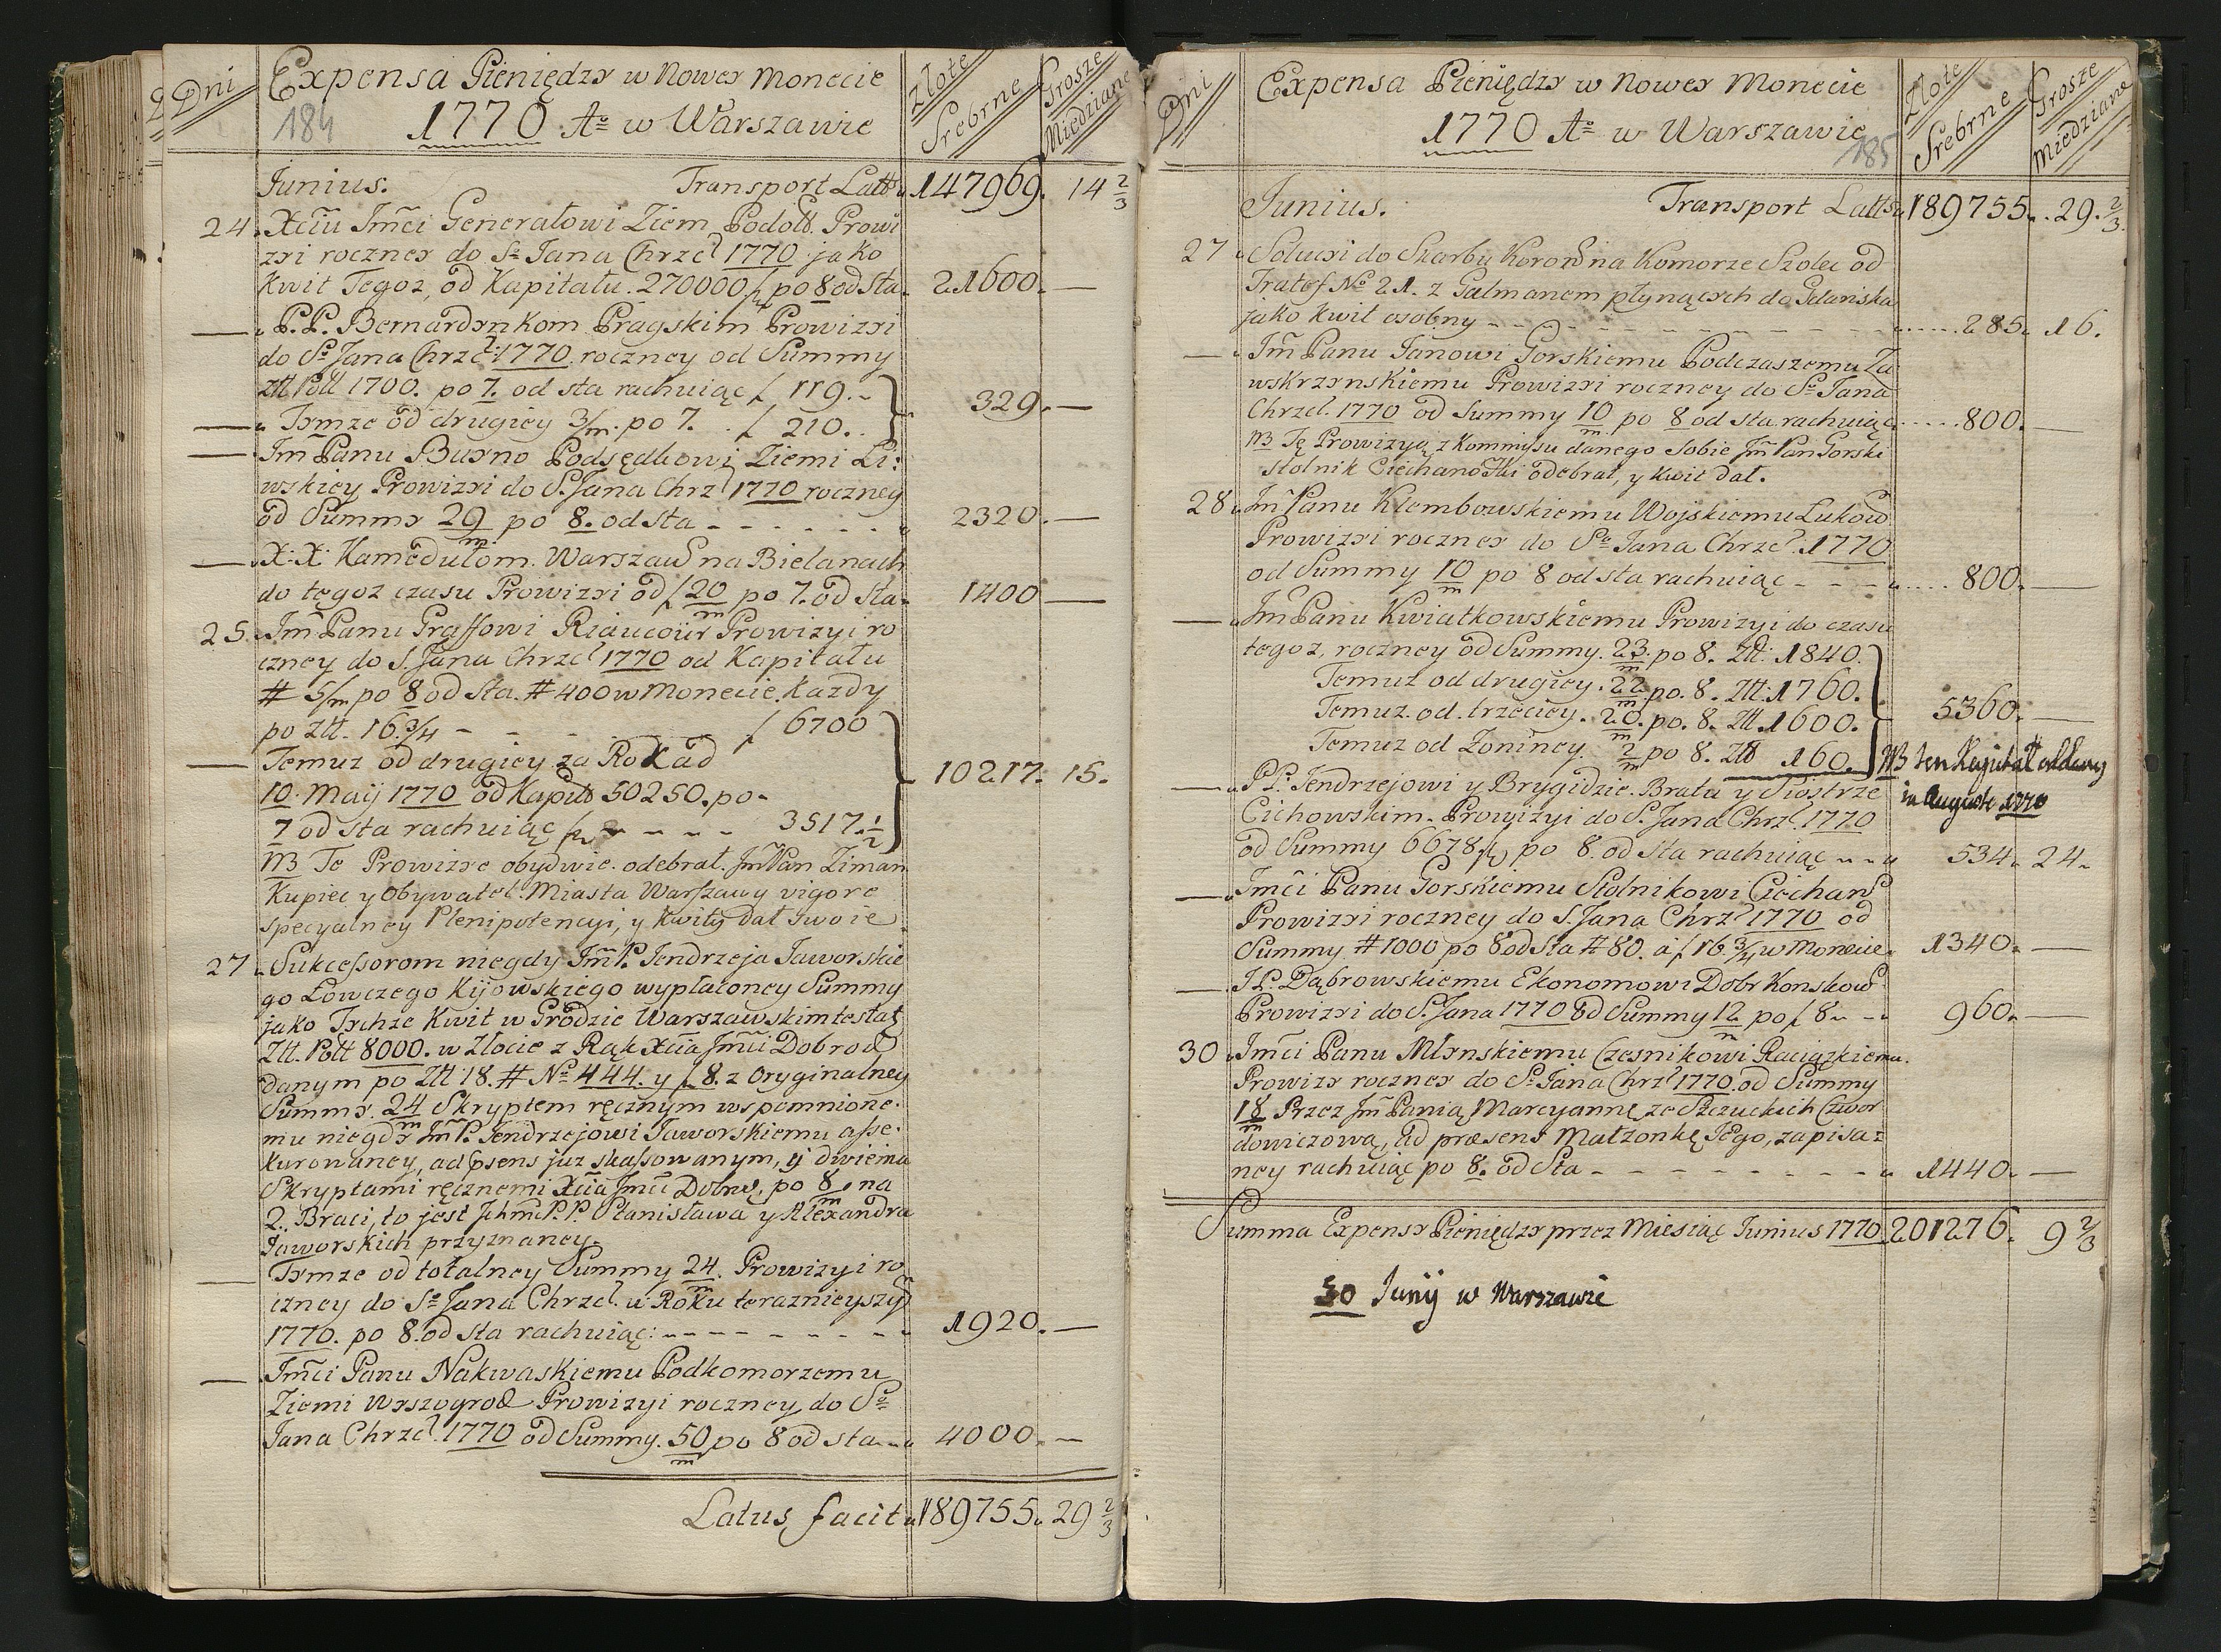 Dni
Expensa Pieniędzy w Nowey Monecie
184
1770 Aº w Warszawie
Złote Srebrne
Grosze Miedziane
Junius. Transport Latts 147969. 14 2/3
24. Xciu Jmci Generałowi Ziem Podols. Prowi
zyi roczney do Sº Jana Chrzcl 1770 jako
Kwit Tegoz, od Kapitału. 270000 f po 8 od sta. 21600. —
— P.P. Bernardynkom Pragskim Prowizyi
do Sº Jana Chrzcl: 1770 roczney od Summy
Ztt Pott 1700. po 7. od sta rachuiąc f 119. —
— Tymze od drugiey 3/m. po 7. . f 210. . 329. —
— Jm Panu Buyno Podsędkowi Ziemi Li:
wskiey Prowizyi do S. Jana Chrzl 1770 roczney
od Summy 29/m po 8. od sta - - - - - - 2320. —
— X: X: Kamedułom. Warszaw na Bielanach
do tegoz czasu Prowizyi od f 20/m po 7. od sta. 1400 —
25. Jm Panu Graffowi Riaucour Prowizyi ro
czney do S. Jana Chrzcl 1770 od Kapitału
# 5/m po 8 od sta. # 400 w Monecie. Kazdy
po Ztt. 16. 3/4 - - - f 6700
— Temuz od drugiey za Rok ad
10. Maij 1770 od Kapitt 50250. po - 10217. 15.
7 od sta rachuiąc f - - - - 3517. 1/2
NB Te Prowizye obydwie. odebrał. Jm Pan Ziman
Kupiec y Obywatel. Miasta Warszawy vigore
specyalney Plenipotencyi, y Kwity Dał swoie
27. Sukcessorom niegdy Jm P. Jendrzeja Jaworskie
go Łowczego Kijowskiego wypłaconey Summy
jako Tychze Kwit w Grodzie Warszawskim testat
Ztt. Pott 8000. w Złocie z Rąk Xcia Jmci Dobrod
danym po Ztt 18. # Nº 444. y f 8. z Oryginalney
Summy. 24/m Skryptem ręcznym wspomnione.
mu niegdy Jm P. Jendrzejowi Jaworskiemu asse.
kurowaney, ad psens juz skassowanym, y dwiema
Skryptami ręcznemi Xcia Jmci Dobrod, po 8/m, na
2. Braci, to jest Jchm P. P. Stanisława y Alexandra
Jaworskich przyznaney.
— Tymze od totalney Summy 24/m. Prowizyi ro
czney do Sº Jana Chrzcl. w Roku teraznieyszy
1770. po 8. od sta rachuiąc: - - - - - - - - 1920. —
— Jmci Panu Nakwaskiemu Podkomorzemu
Ziemi Wyszogrod Prowizyi roczney do Sº
Jana Chrzcl. 1770 od Summy. 50/m po 8 od sta - - 4000. —
Latus facit 189755. 29 2/3
Dni
Expensa Pieniędzy w Nowey Monecie
1770 Aº w Warszawie
185
Złote Srebrne
Grosze Miedziane
Junius. Transport Latts 189755. 29. 2/3
27 Solucyi do Skarbu Koron na Komorze Szolec od
Tratef Nº 21. z Galmanem płynących do Gdańska
jako kwit osobny - - - - - - - - - - - - 285. 16.
— Jm Panu Janowi Gorskiemu Podczaszemu Za
wskrzynskiemu Prowizyi roczney do Sº Jana
Chrzcl. 1770 od Summy 10/m po 8 od sta rachuiąc. . . . . 800. —
NB Tę Prowizyą z Kommissu danego Sobie Jm Pan Gorski
Stolnik Ciechanowski odebrał, y Kwit dał.
28 Jm Panu Klembowskiemu Wojskiemu Łukow
Prowizyi roczney do Sº Jana Chrzcl. 1770
od Summy 10/m po 8 od sta rachuiąc - - - . . . . 800. —
— Jm Panu Kwiatkowskiemu Prowizyi do czasu
tegoz, roczney od Summy. 23/m. po 8. Ztt: 1840.
Temuz od drugiey. 22/m. po. 8. Ztt: 1760.
Temuz. od. trzeciey. 20/m. po. 8. Ztt 1600. 5360. —
Temuz od Zoniney. 2/m po 8. Ztt 160. NB ten Kapitał oddany
in Augusto 1770
— P P. Jendrzejowi y Brygidzie. Bratu y Siostrze
Cichowskim. Prowizyi do S. Jana Chrzl. 1770
od Summy 6678 f po 8. od sta rachuiąc - - 534. 24.
— Jmci Panu Gorskiemu Stolnikowi Ciechan
Prowizyi roczney do S. Jana Chrzl 1770 od
Summy # 1000 po 8 od sta # 80. a f 16 3/4 w Monecie. 1340. —
— J P. Dąbrowskiemu Ekonomowi Dobr Konskow
Prowizyi do S. Jana 1770 od Summy 12/m po f 8 - - 960. —
30 Jmci Panu Młynskiemu Czesnikowi Raciązkiemu.
Prowizy roczney do Sº Jana Chrzl 1770. od Summy
18/m Przez Jm Panią Marcyannę ze Szczuckich Czwor
dowiczową, ad præsens Małzonkę Jego, zapisa:
ney rachuiąc po 8. od sta - - - - - - - - - 1440. —
Summa Expensy Pieniędzy przez Miesiąc Junius 1770. 201276. 9 2/3
30 Junij w Warszawie